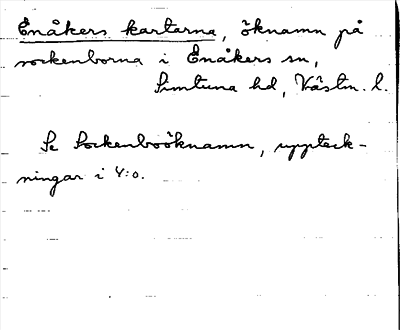 Enåkers kartarna, öknamn på
sockenborna i Enåkers sn,
Simtuna hd, Västm. l.
Se Sockenboöknamn, uppteck-
ningar i 4:o.